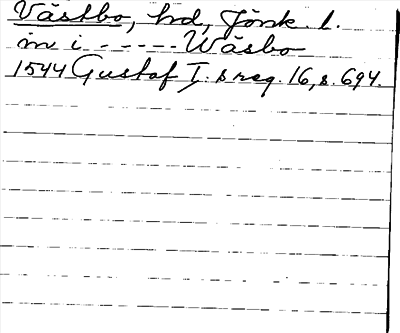 Västbo, hd, Jönk. l.
in i - - - - - Wäsbo
1544 Gustaf I:s reg. 16, s. 694.